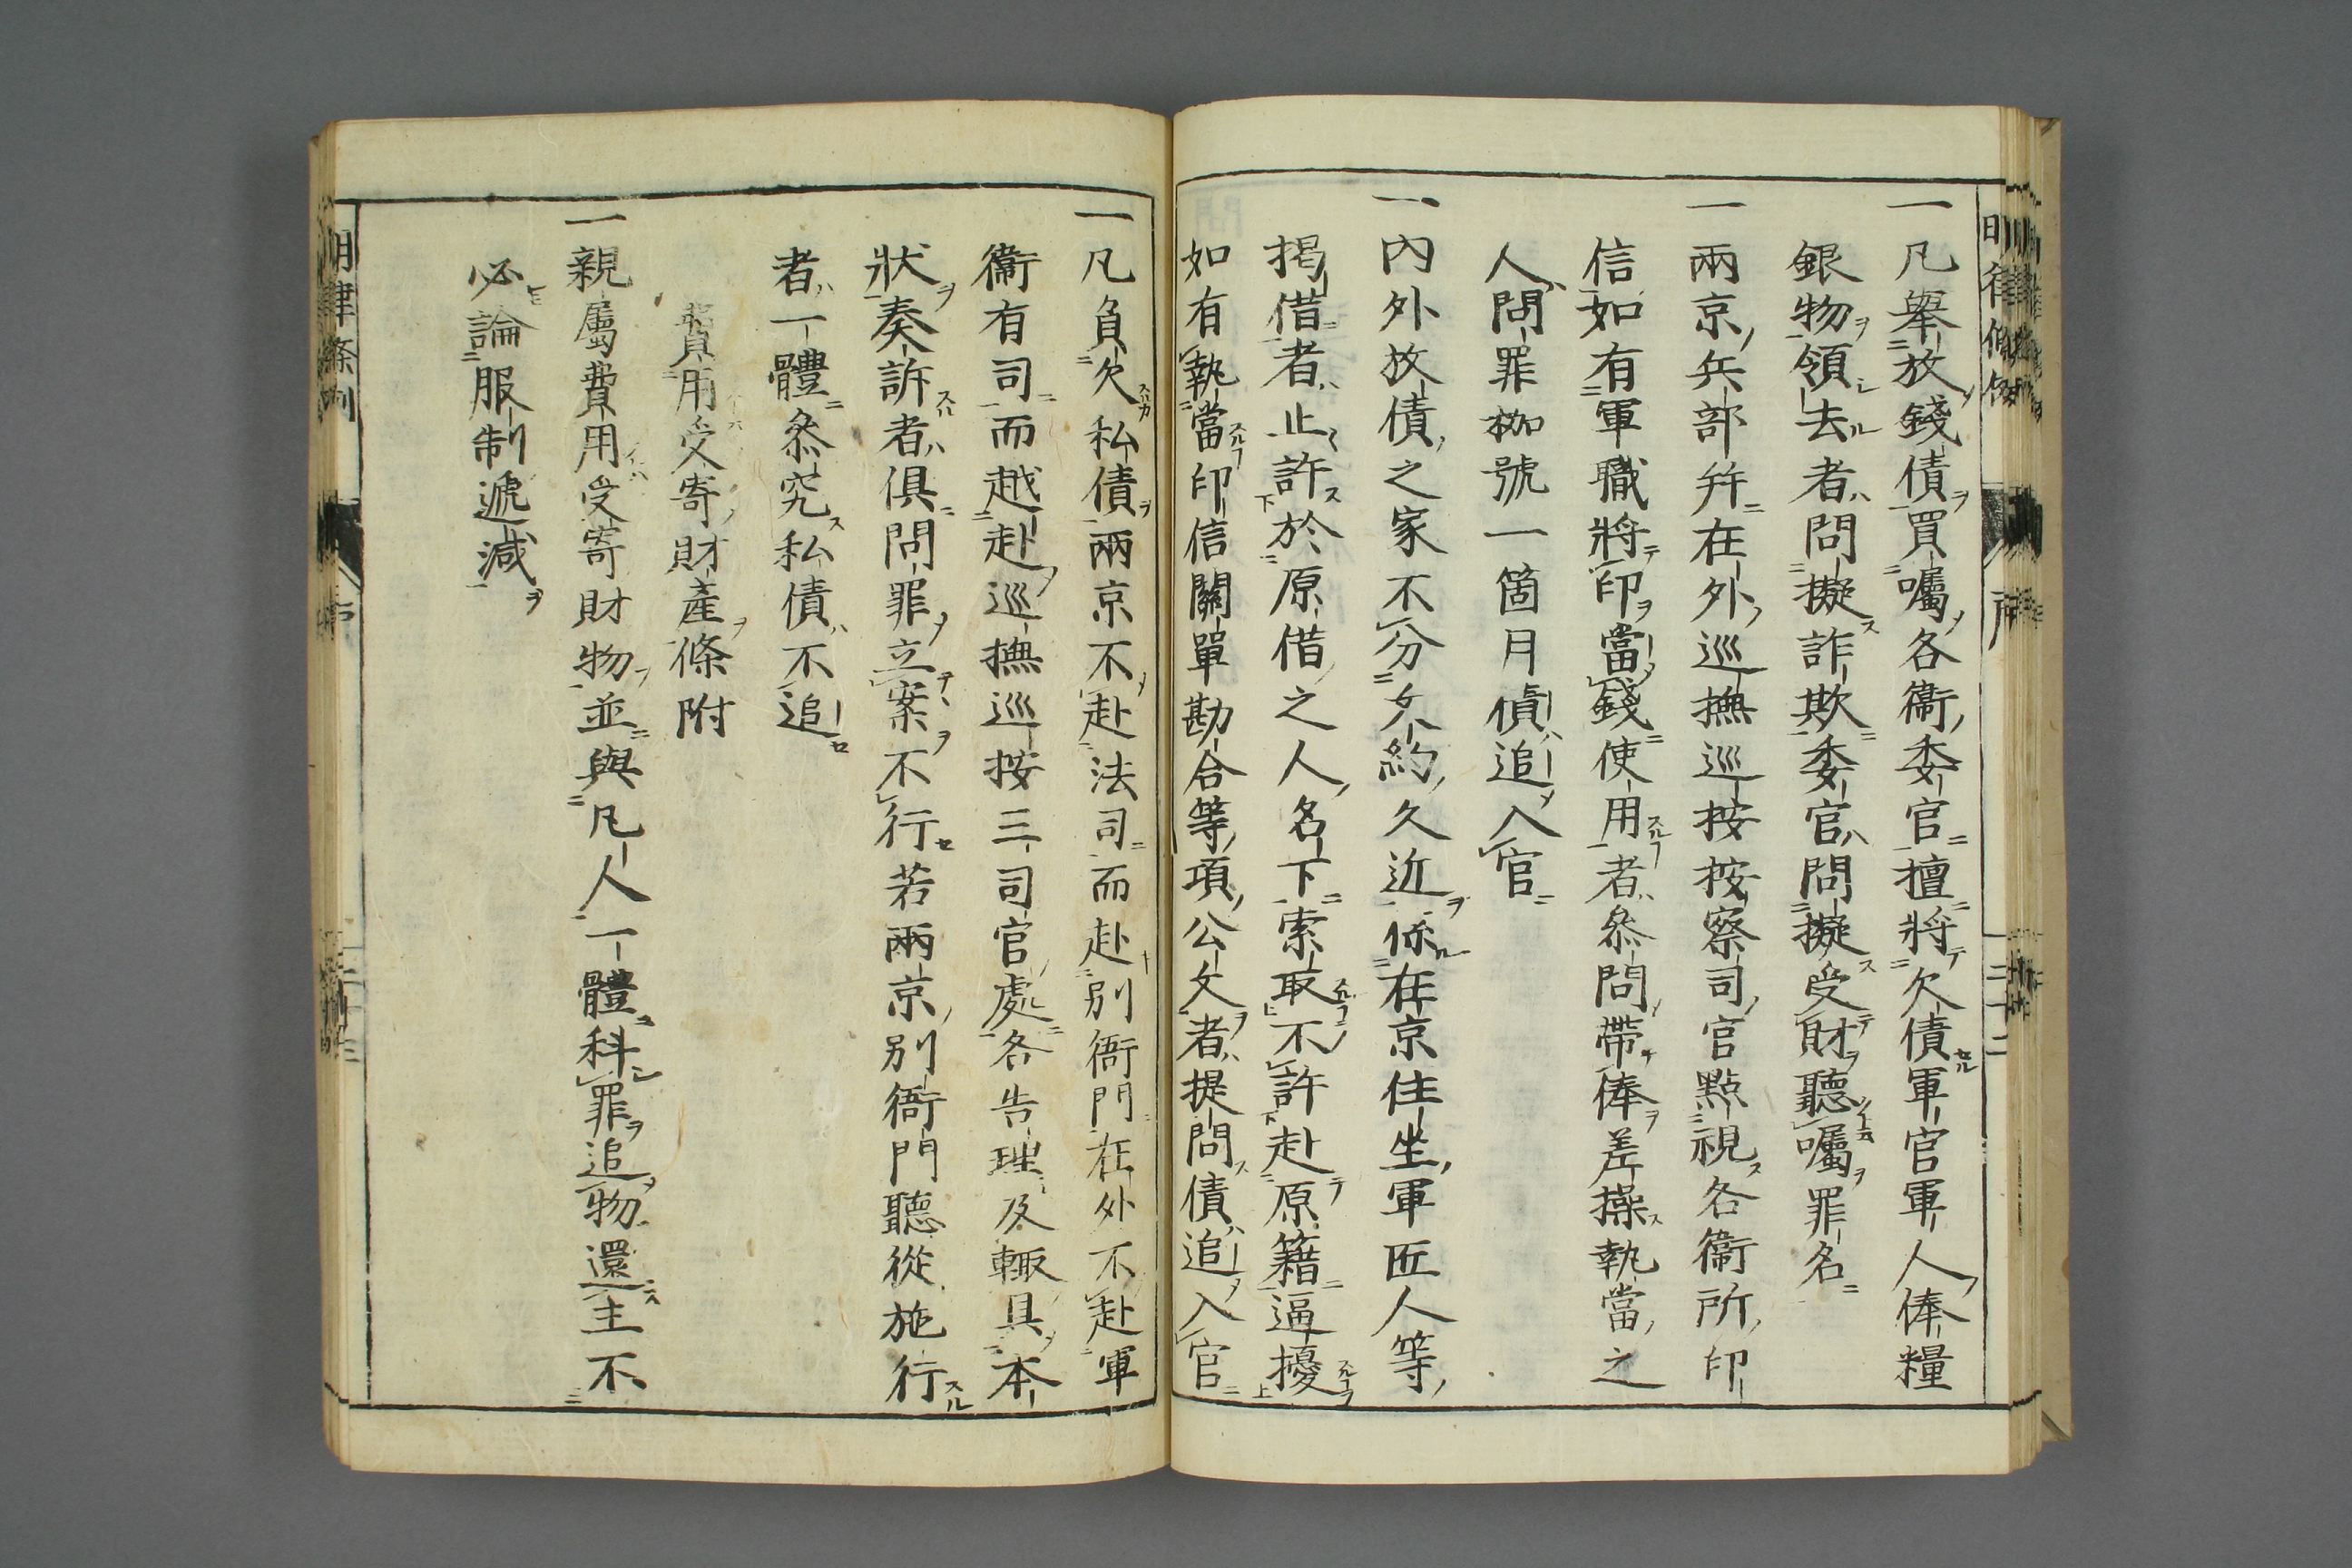 一凡舉放錢債買囑各衞委官擅將欠債軍官軍人俸糧
銀物領去者問擬詐欺委官問擬受財聽囑罪名
一兩京兵部幷在外巡撫巡按按察司官點視各衞所印
信如有軍職將印當錢使用者叅問帶俸差操執當之
人問罪枷號一箇月債追入官
一內外放債之家不分文約久近係在京住坐軍匠人等
揭借者止許於原借之人名下索取不許赴原籍逼擾
如有執當印信關單勘合等項公文者提問債追入官
一凡負欠私債兩京不赴法司而赴別衙門在外不赴軍
衞有司而越赴巡撫巡按三司官處各告理及輙具本
狀奏訴者俱問罪立案不行若兩京別衙門聽從施行
者一體叅究私債不追
費用受寄財產條附
一親屬費用受寄財物並與凡人一體科罪追物還主不
必論服制遞減
明律條例